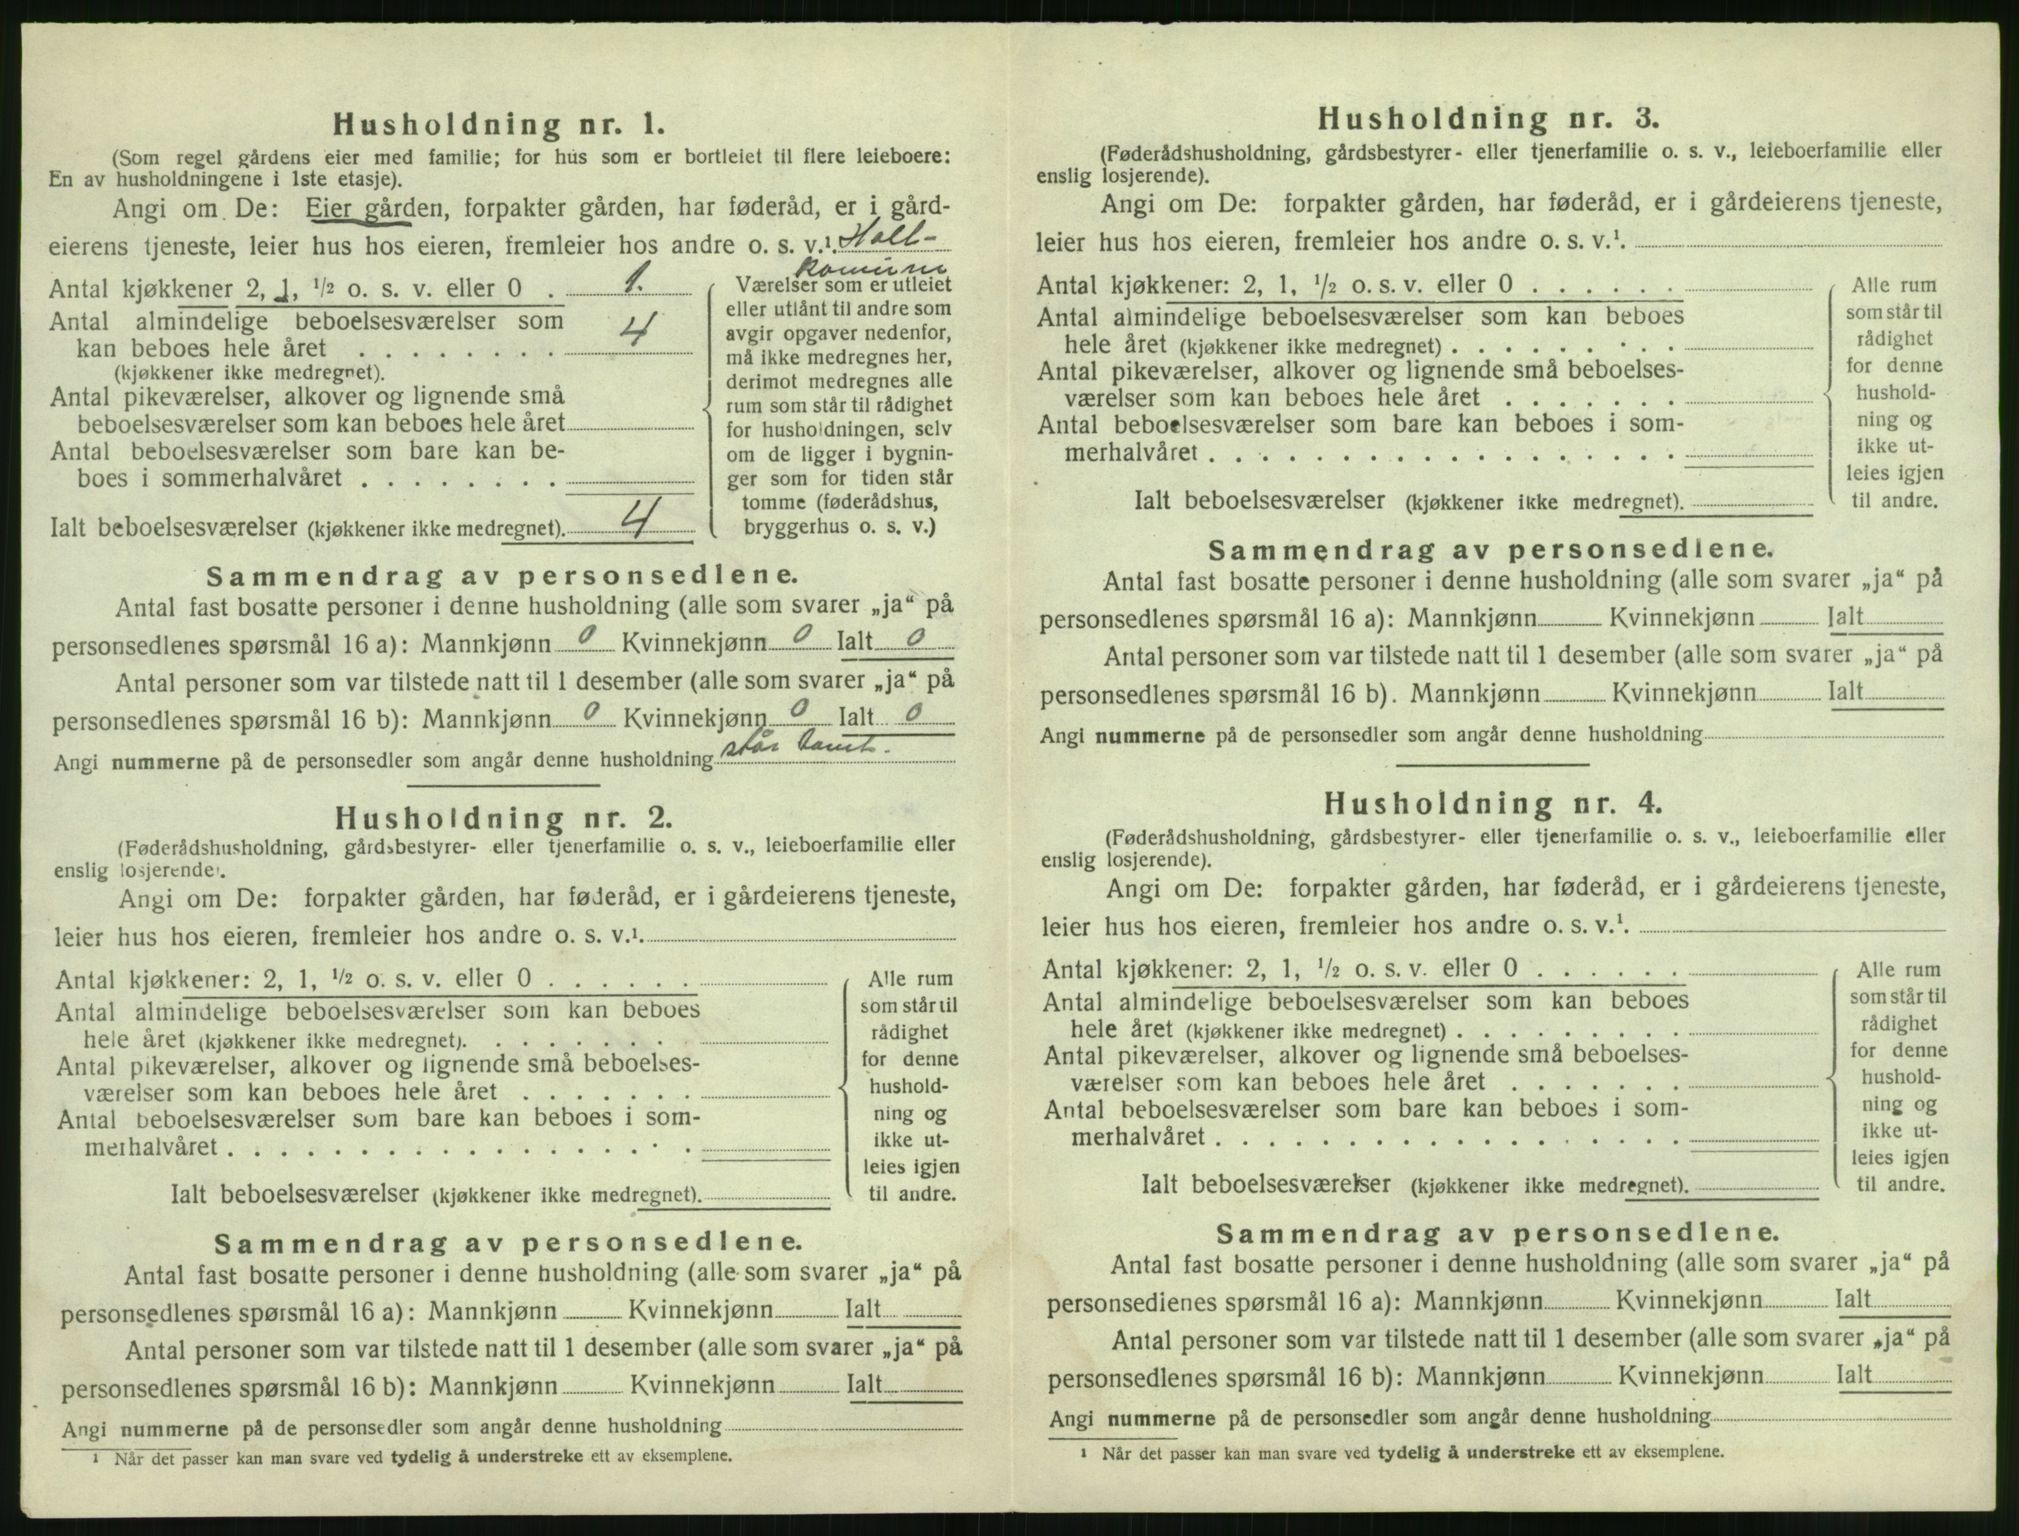 Husholdning nr. 1.
(Som regel gårdens eier med familie; for hus som er bortleiet til flere leieboere:
En av husholdningene i 1ste etasje).
Angi om De: Eier gården, forpakter gården, har føderåd, er i gård-
eierens tjeneste, leier hus hos eieren, fremleier hos andre o. s. v.¹.
komune
Antal kjøkkener 2, 1, ½ o. s. v. eller 0 . 1.
Antal almindelige beboelsesværelser som
kan beboes hele året . . . . . . . . 4
(kjøkkener ikke medregnet).
Antal pikeværelser, alkover og lignende små
beboelsesværelser som kan beboes hele året
Antal beboelsesværelser som bare kan be-
boes i sommerhalvåret . . . . . . . .
Ialt beboelsesværelser (kjøkkener ikke medregnet). 4
Værelser som er utleiet
eller utlånt til andre som
avgir opgaver nedenfor,
må ikke medregnes her,
derimot medregnes alle
rum som står til rådighet
for husholdningen, selv
om de ligger i bygnin-
ger som for tiden står
tomme (føderådshus,
bryggerhus o. s. v.)
Sammendrag av personsedlene.
Antal fast bosatte personer i denne husholdning (alle som svarer „ja“ på
personsedlenes spørsmål 16 a): Mannkjønn 0 Kvinnekjønn 0 Ialt 0
Antal personer som var tilstede natt til 1 desember (alle som svarer „ja“ på
personsedlenes spørsmål 16 b): Mannkjønn 0 Kvinnekjønn 0 Ialt 0
Angi nummerne på de personsedler som angår denne husholdning står tomt.
Husholdning nr. 2.
(Føderådshusholdning, gårdsbestyrer- eller tjenerfamilie o. s. v., leieboerfamilie eller
enslig losjerende).
Angi om De: forpakter gården, har føderåd, er i gårdeierens tjeneste,
leier hus hos eieren, fremleier hos andre o. s. v.¹.
Antal kjøkkener: 2, 1, ½ o. s. v. eller 0 . . . . . .
Antal almindelige beboelsesværelser som kan beboes
hele året (kjøkkener ikke medregnet). . . . . . . .
Antal pikeværelser, alkover og lignende små beboelses-
værelser som kan beboes hele året . . . . . . .
Antal beboelsesværelser som bare kan beboes i som-
merhalvåret . . . . . . . . . . . . . . . . . .
Ialt beboelsesværelser (kjøkkener ikke medregnet).
Alle rum
som står til
rådighet
for denne
hushold-
ning og
ikke ut-
leies igjen
til andre.
Sammendrag av personsedlene.
Antal fast bosatte personer i denne husholdning (alle som svarer „ja“ på
personsedlenes spørsmål 16 a): Mannkjønn Kvinnekjønn Ialt
Antal personer som var tilstede natt til 1 desember (alle som svarer „ja“ på
personsedlenes spørsmål 16 b): Mannkjønn Kvinnekjønn Ialt
Angi nummerne på de personsedler som angår denne husholdning
¹ Når det passer kan man svare ved tydelig å understreke ett av eksemplene.
Husholdning nr. 3.
(Føderådshusholdning, gårdsbestyrer- eller tjenerfamilie o. s. v., leieboerfamilie eller
enslig losjerende).
Angi om De: forpakter gården, har føderåd, er i gårdeierens tjeneste,
leier hus hos eieren, fremleier hos andre o. s. v.¹.
Antal kjøkkener: 2, 1, ½ o. s. v. eller 0 . . . . . .
Antal almindelige beboelsesværelser som kan beboes
hele året (kjøkkener ikke medregnet) . . . . . . . . .
Antal pikeværelser, alkover og lignende små beboelses-
værelser som kan beboes hele året . . . . . . .
Antal beboelsesværelser som bare kan beboes i som-
merhalvåret . . . . . . . . . . . . . . . . . .
Ialt beboelsesværelser (kjøkkener ikke medregnet).
Alle rum
som står til
rådighet
for denne
hushold-
ning og
ikke ut-
leies igjen
til andre.
Sammendrag av personsedlene.
Antal fast bosatte personer i denne husholdning (alle som svarer „ja“ på
personsedlenes spørsmål 16 a): Mannkjønn Kvinnekjønn Ialt
Antal personer som var tilstede natt til 1 desember (alle som svarer „ja“ på
personsedlenes spørsmål 16 b). Mannkjønn Kvinnekjønn Ialt
Angi nummerne på de personsedler som angår denne husholdning
Husholdning nr. 4.
(Føderådshusholdning, gårdsbestyrer- eller tjenerfamilie o. s. v., leieboerfamilie eller
enslig losjerende).
Angi om De: forpakter gården, har føderåd, er i gårdeierens tjeneste,
leier hus hos eieren, fremleier hos andre o. s. v.¹.
Antal kjøkkener: 2, 1, ½ o. s. v. eller 0 . . . . . .
Antal almindelige beboelsesværelser som kan beboes
hele året (kjøkkener ikke medregnet) . . . . . . . . .
Antal pikeværelser, alkover og lignende små beboelses-
værelser som kan beboes hele året . . . . . . .
Antal beboelsesværelser som bare kan beboes i som-
merhalvåret . . . . . . . . . . . . . . . . . .
Ialt beboelsesværelser (kjøkkener ikke medregnet).
Alle rum
som står til
rådighet
for denne
hushold-
ning og
ikke ut-
leies igjen
til andre.
Sammendrag av personsedlene.
Antal fast bosatte personer i denne husholdning (alle som svarer „ja“ på
personsedlenes spørsmål 16 a): Mannkjønn Kvinnekjønn Ialt
Antal personer som var tilstede natt til 1 desember (alle som svarer „ja“ på
personsedlenes spørsmål 16 b): Mannkjønn Kvinnekjønn Ialt
Angi nummerne på de personsedler som angår denne husholdning
¹ Når det passer kan man svare ved tydelig å understreke ett av eksemplene.